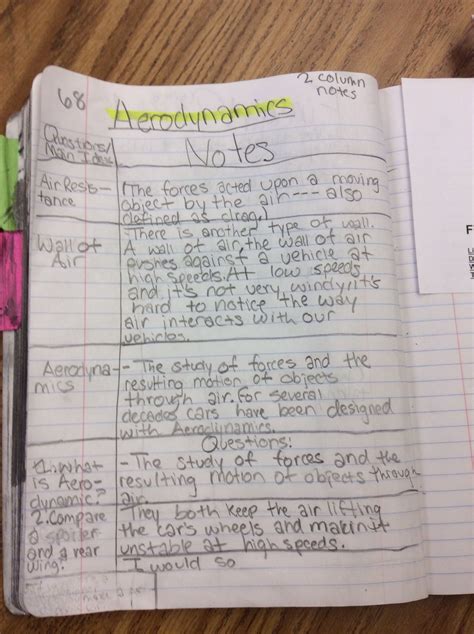 2 column
notes
68 Aerodynamics
Questions/
Main Ideas
Notes
Air Resis-
tance
(The forces acted upon a moving
object by the air--- also
defined as drag.)
Wall of
Air
-There is another type of wall.
A wall of air, the wall of air
pushes against a vehicle at
high speeds. At low speeds
and it's not very windy it's
hard to notice the way
air interacts with our
vehicles.
Aerodyna-
mics
- The study of forces and the
resulting motion of objects
through air. For several
decades cars have been designed
with Aerodynamics.
Questions:
1. What
is Aero-
dynamic?
- The study of forces and the
resulting motion of objects through
air.
2. Compare
a spoiler
and a rear
wing.
They both keep the air lifting
the car's wheels and makin it
unstable at high speeds.
I would so
F